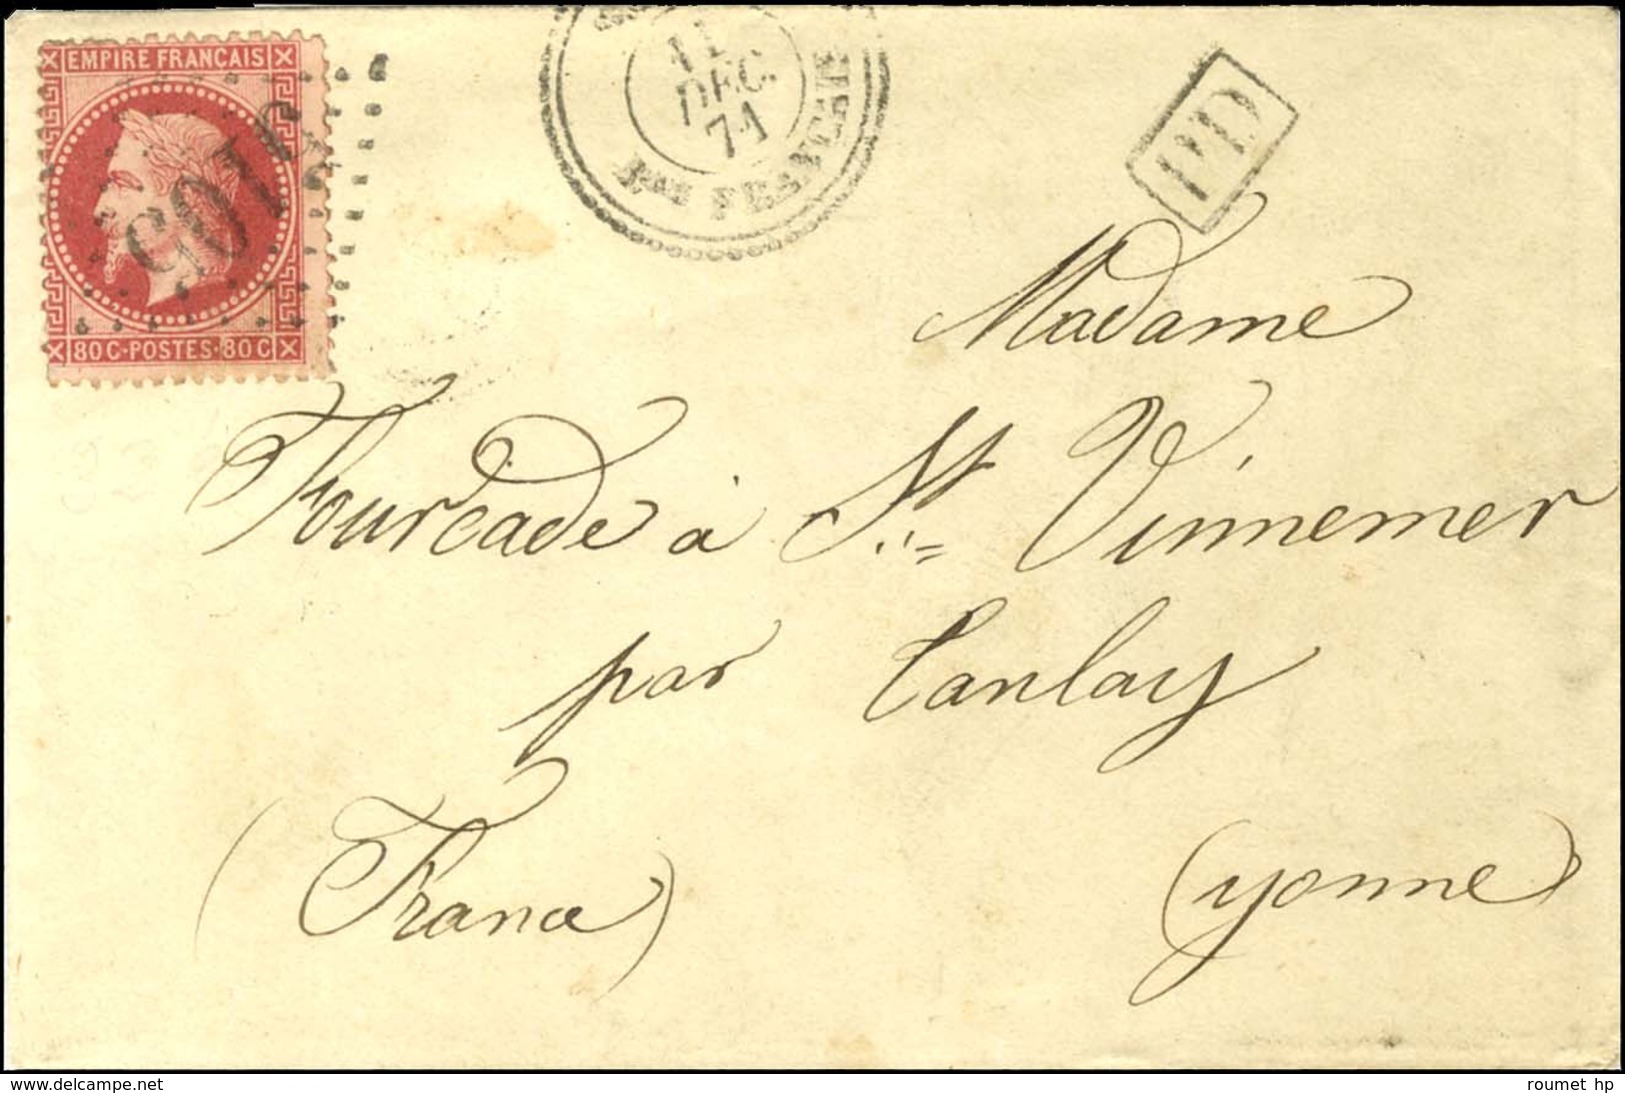 EMPIRE FRANCAIS
80 C · POSTES · 80 C
DEC.
71
Bau FRANÇAIS
PD
Madame
Fourcade à St. Vinnemer
par Tanlay
(France) (Yonne)
www.delcampe.net
roumet hp